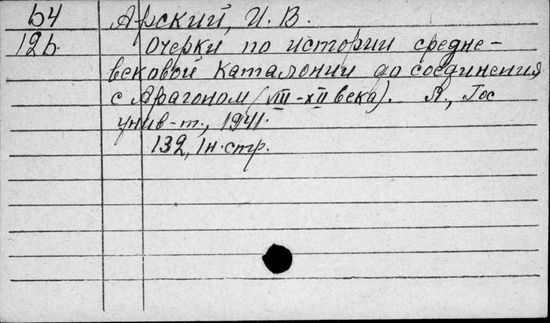 64 Арский, И. В.
12b. Очерки по истории средне-
вековой Каталонии до соединения
с Арагоном (VIII-XII века). Л., Гос
унив-т., 1941.
132, 1н.стр.